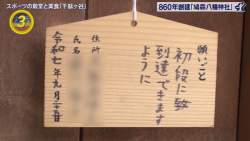 スポーツの殿堂と美食「千駄ヶ谷」
860年創建「鳩森八幡神社」
願いごと
初段に致
到達できます
ように
住所
氏名
令和七年九月二十一日